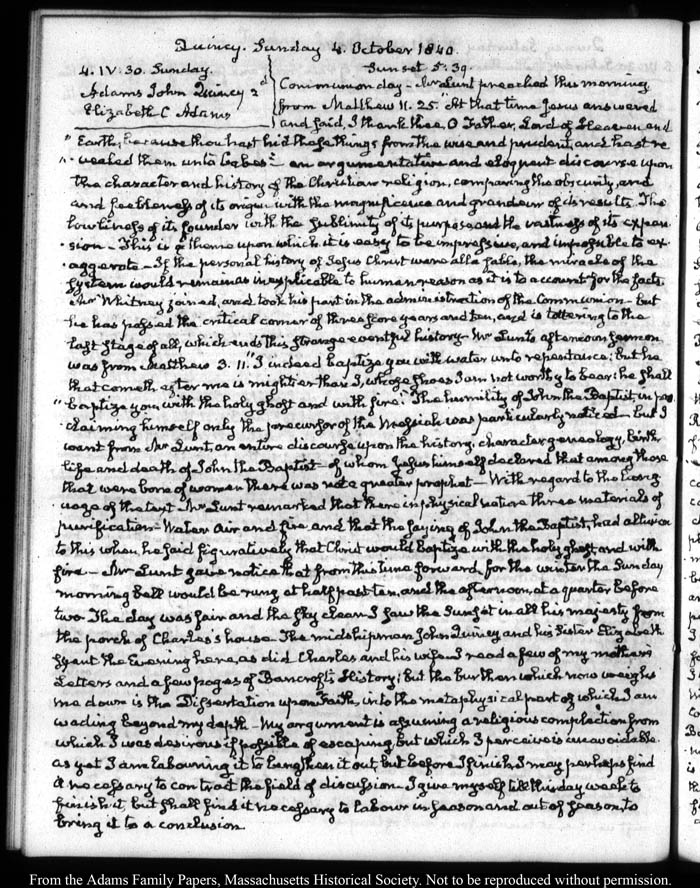 Quincy. Sunday 4. October 1840.
4. IV:30. Sunday.
Adams John Quincy 2d
Elizabeth C Adams
Sunset 5:39.
Communion day – Mr Lunt preached this morning
from Matthew 11. 25. "At that time Jesus answered
and said, I thank thee, O Father, Lord of Heaven and
" Earth, because thou hast hid these things from the wise and prudent, and hast re
" vealed them unto babes" – an argumentative and eloquent discourse upon
the character and history of the Christian religion, comparing the obscurity, and
and feebleness of its origin with the magnificence and grandeur of its results. The
lowliness of its founder with the sublimity of its purpose and the vastness of its expan
sion – This is a theme upon which it is easy to be impressive, and impossible to ex
aggerate – If the personal history of Jesus Christ were all a fable, the miracles of the
system would remain as inexplicable to human reason as it is to account for the facts.
Mr Whitney joined, and took his part in the administration of the Communion – but
he has passed the critical corner of three score years and ten, and is tottering to the
last stage of all, which ends this strange eventful history – Mr Lunt's afternoon sermon
was from Matthew 3. 11. "I indeed baptize you with water unto repentance; but he
that cometh after me is mightier than I, whose shoes I am not worthy to bear: he shall
" baptize you, with the holy ghost and with fire." The humility of John the Baptist in pro
claiming himself only the precursor of the Messiah was particularly noticed – but I
want from Mr Lunt, an entire discourse upon the history, character, genealogy, birth
life and death of John the Baptist – of whom Jesus himself declared that among those
that were born of women there was not a greater prophet – With regard to the lang
uage of the text Mr Lunt remarked that there in physical nature three materials of
purification – Water air and fire and that the saying of John the Baptist, had allusion
to this when he said figuratively that Christ would baptize with the holy ghost, and with
fire – Mr Lunt gave notice that from this time forward, for the winter the Sunday
morning bell would be rung at half past ten, and the afternoon, at a quarter before
two. The day was fair and the sky clear. I saw the Sunset in all his majesty from
the porch of Charles's house. The midshipman John Quincy, and his Sister Elizabeth
spent the Evening here, as did Charles and his wife. I read a few of my mother's
Letters and a few pages of Bancroft's History; but the burthen which now weighs
me down is the Dissertation upon Faith, into the metaphysical part of which I am
wading beyond my depth – My argument is assuming a religious complection from
which I was desirous if possible of escaping, but which I perceive is unavoidable.
as yet I am labouring it to lengthen it out, but before I finish I may perhaps find
it necessary to contract the field of discussion. I give myself till this day week to
finish it, but shall find it necessary to labour in season and out of season, to
bring it to a conclusion.
From the Adams Family Papers, Massachusetts Historical Society. Not to be reproduced without permission.